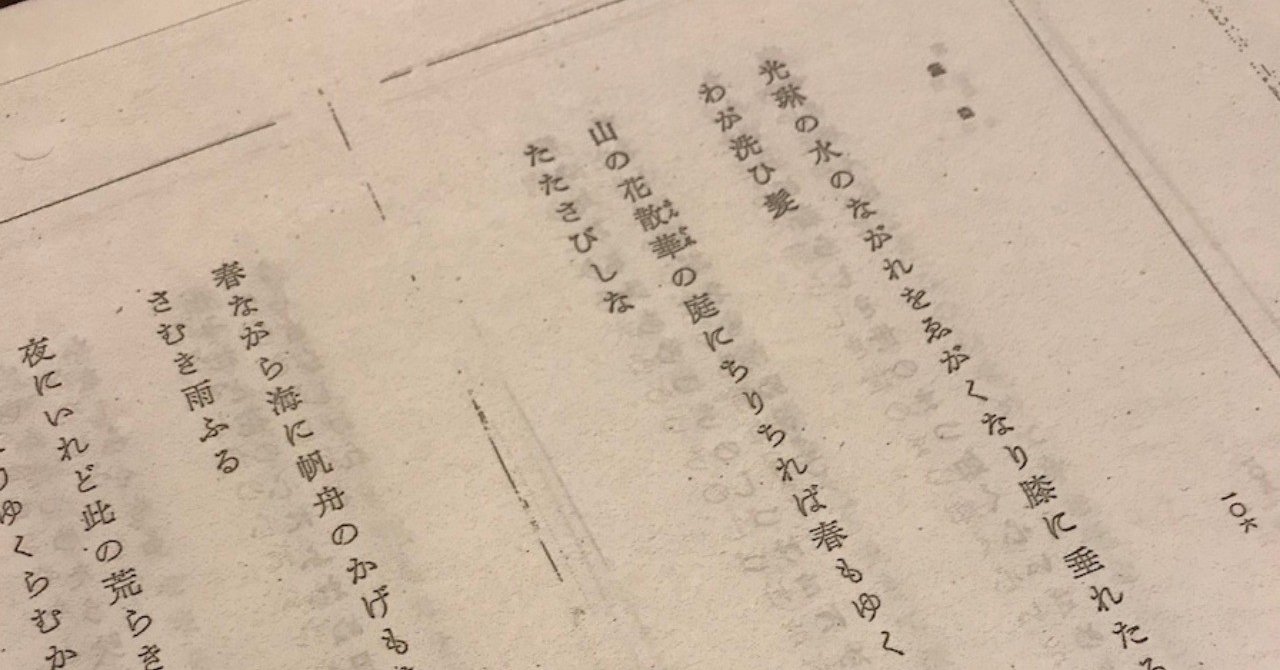 光琳の水のながれをゑがくなり膝に垂れたる
わが洗ひ髪
山の花散華の庭にちりちれば春もゆく
たたさびしな
春ながら海に帆舟のかげも
さむき雨ふる
夜にいれど此の荒らき
りゆくらむか
一〇六